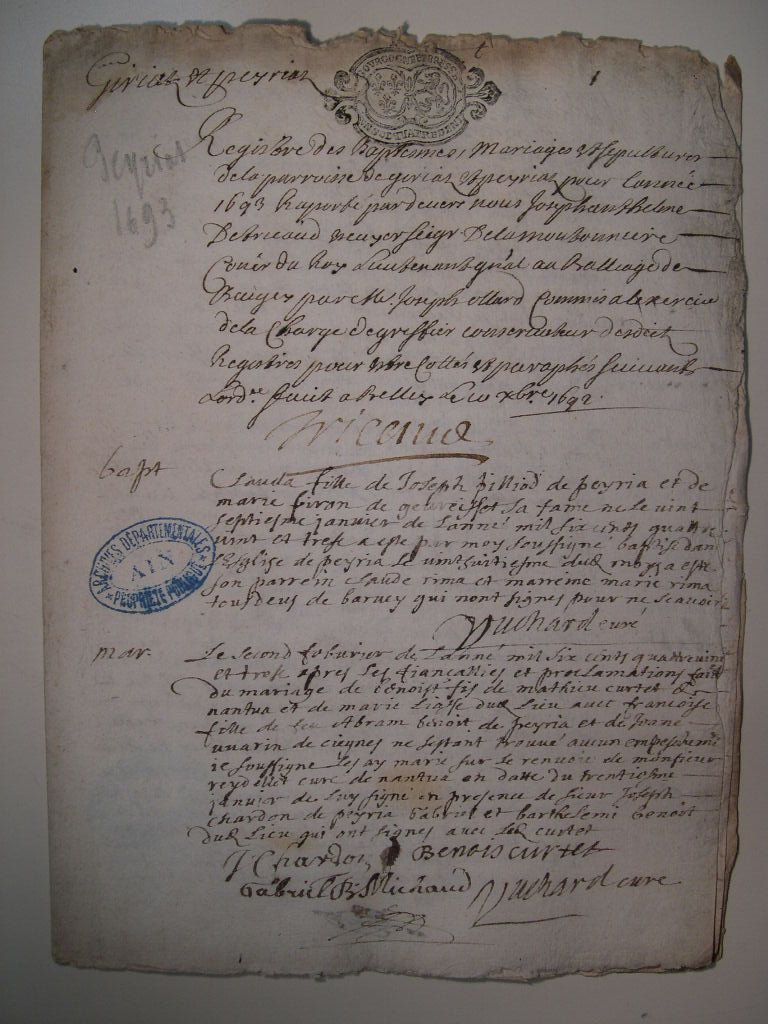 Giriat et peyriat
Peyriat
1693
Registre des Baptesmes, Mariages et sepultures
de la parroisse de giriat et peyriat pour lannée
1693 Raporté pardevers nous Joseph anthelme
De tricaud escuyer seigr De la
Coner du Roy Lieutenant gnal au Balliage de
Bugey par Me Joseph ollard Commis a lexercice
de la Charge de greffier conservateur desdit
Registres pour estre Cottés et paraphés suivant
Lordce faict a Belley Le xbre 1692
Tricaud
bapt
Clauda fille de Joseph filliod de peyria et de
marie de sa fame ne le vint
septiesme janvier de Lanné mil six cints quattre
vint et trese a este par moy soussigné baptisé dans
l'Eglise de peyria le vint huitiesme dud moys a esté
son parrein Claude rima et marreine marie rima
tous deus de qui nont signes pour ne scavoir
Vuchard curé
mar
Le second febvrier de Lanné mil six cints quattrevint
et trese apres les fiancallies et proclamations fait
du mariage de benoist fis de mathieu curtet de
nantua et de marie dud Lieu avec francoise
fille de feu Abram benoist de peyria et de Jeane
de ne sestant trouvé aucun empeschemt
ie soussigne les ay marie sur le renvoie de monsieur
reydellet cure de nantua en datte du trentiesme
janvier de luy signé en presence de sieur Joseph
chardon de peyria Gabriel et barthelemi benoist
dud Lieu qui ont signes avec led curtet
J Chardon Benois curtet
Gabriel B Michaud Vuchard cure
ARCHIVES DÉPARTEMENTALES
AIN
PROPRIÉTÉ PUBLIQUE